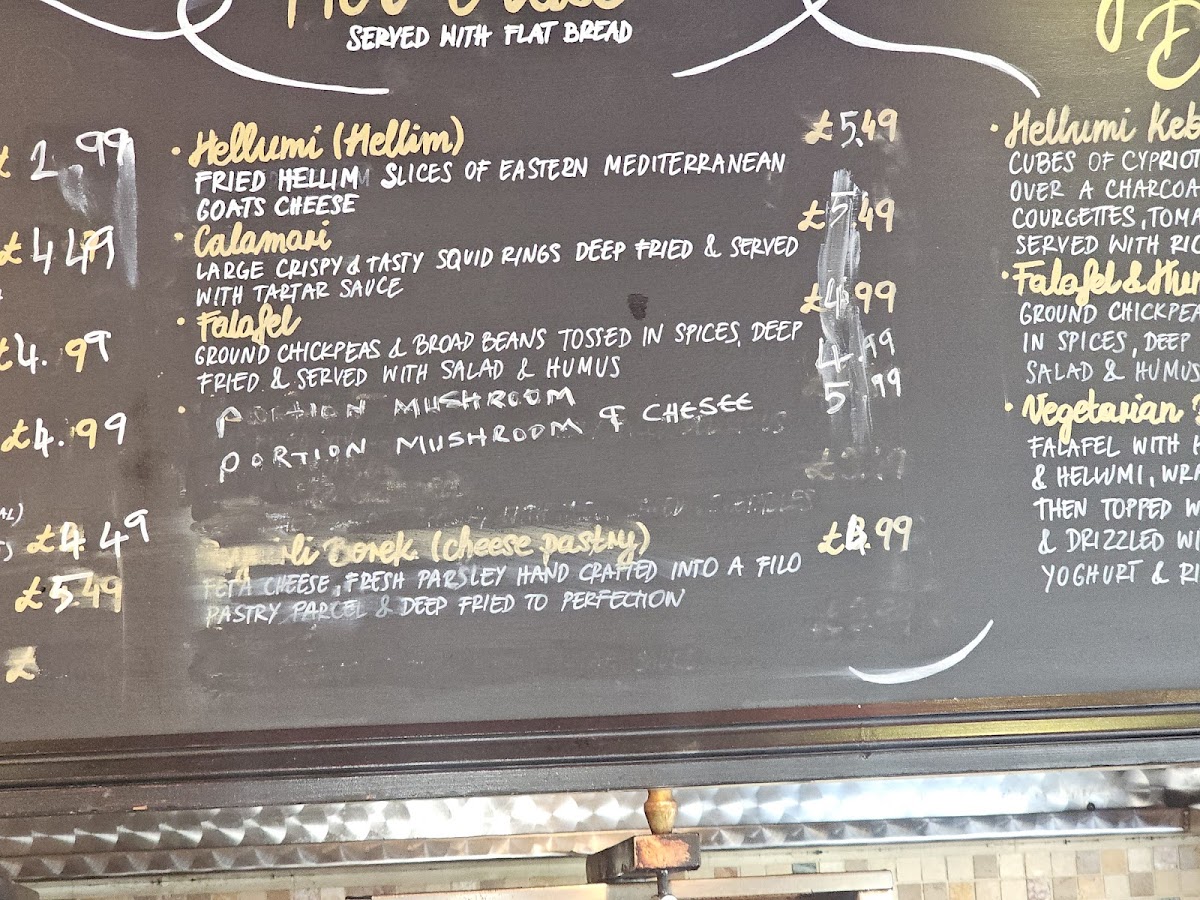 SERVED WITH FLAT BREAD
2.99
£4.49
£4.99
£4.99
£4.49
£5.49
£
· Hellumi (Hellim) £5.49
FRIED HELLIM SLICES OF EASTERN MEDITERRANEAN
GOATS CHEESE
· Calamari £5.49
LARGE CRISPY & TASTY SQUID RINGS DEEP FRIED & SERVED
WITH TARTAR SAUCE
· Falafel £4.99
GROUND CHICKPEAS & BROAD BEANS TOSSED IN SPICES, DEEP
FRIED & SERVED WITH SALAD & HUMUS
· PORTION MUSHROOM 4.99
PORTION MUSHROOM & CHESEE 5.99
Borek (cheese pastry) £ .99
FETA CHEESE, FRESH PARSLEY HAND CRAFTED INTO A FILO
PASTRY PARCEL & DEEP FRIED TO PERFECTION
· Hellumi Keb
CUBES OF CYPRIOT
OVER A CHARCOA
COURGETTES, TOMA
SERVED WITH RIC
· Falafel & Hum
GROUND CHICKPEA
IN SPICES, DEEP
SALAD & HUMUS
· Vegetarian
FALAFEL WITH H
& HELLUMI, WRA
THEN TOPPED W
& DRIZZLED WI
YOGHURT & RI